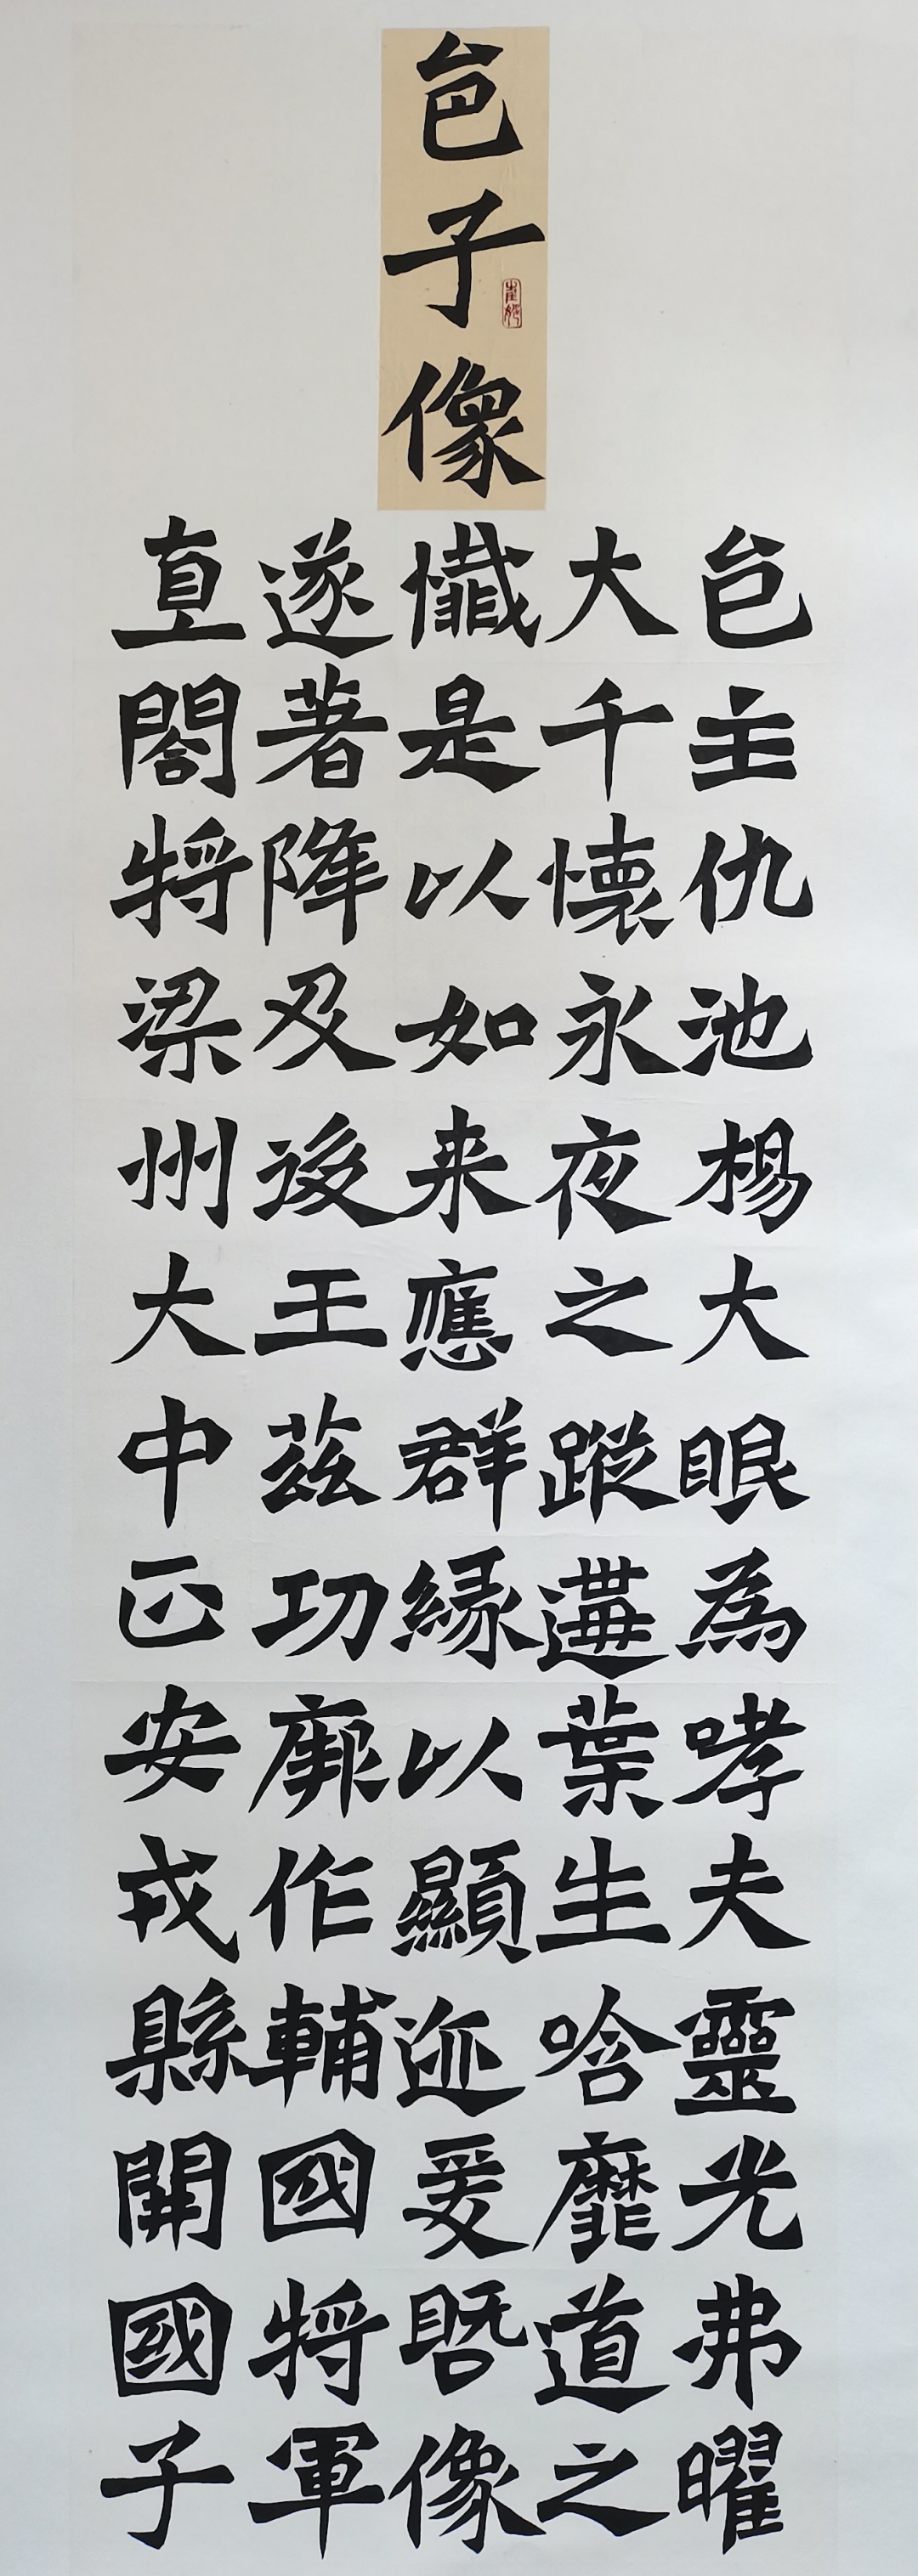 邑子像
邑主仇池楊大眼為哮夫靈光弗曜
大千懷永夜之蹤遘葉生唅靡道之
懺是以如来應群緣以顯迹爰暨像
遂著降及後王茲功厥作輔國將軍
直閤將梁州大中正安戎縣開國子